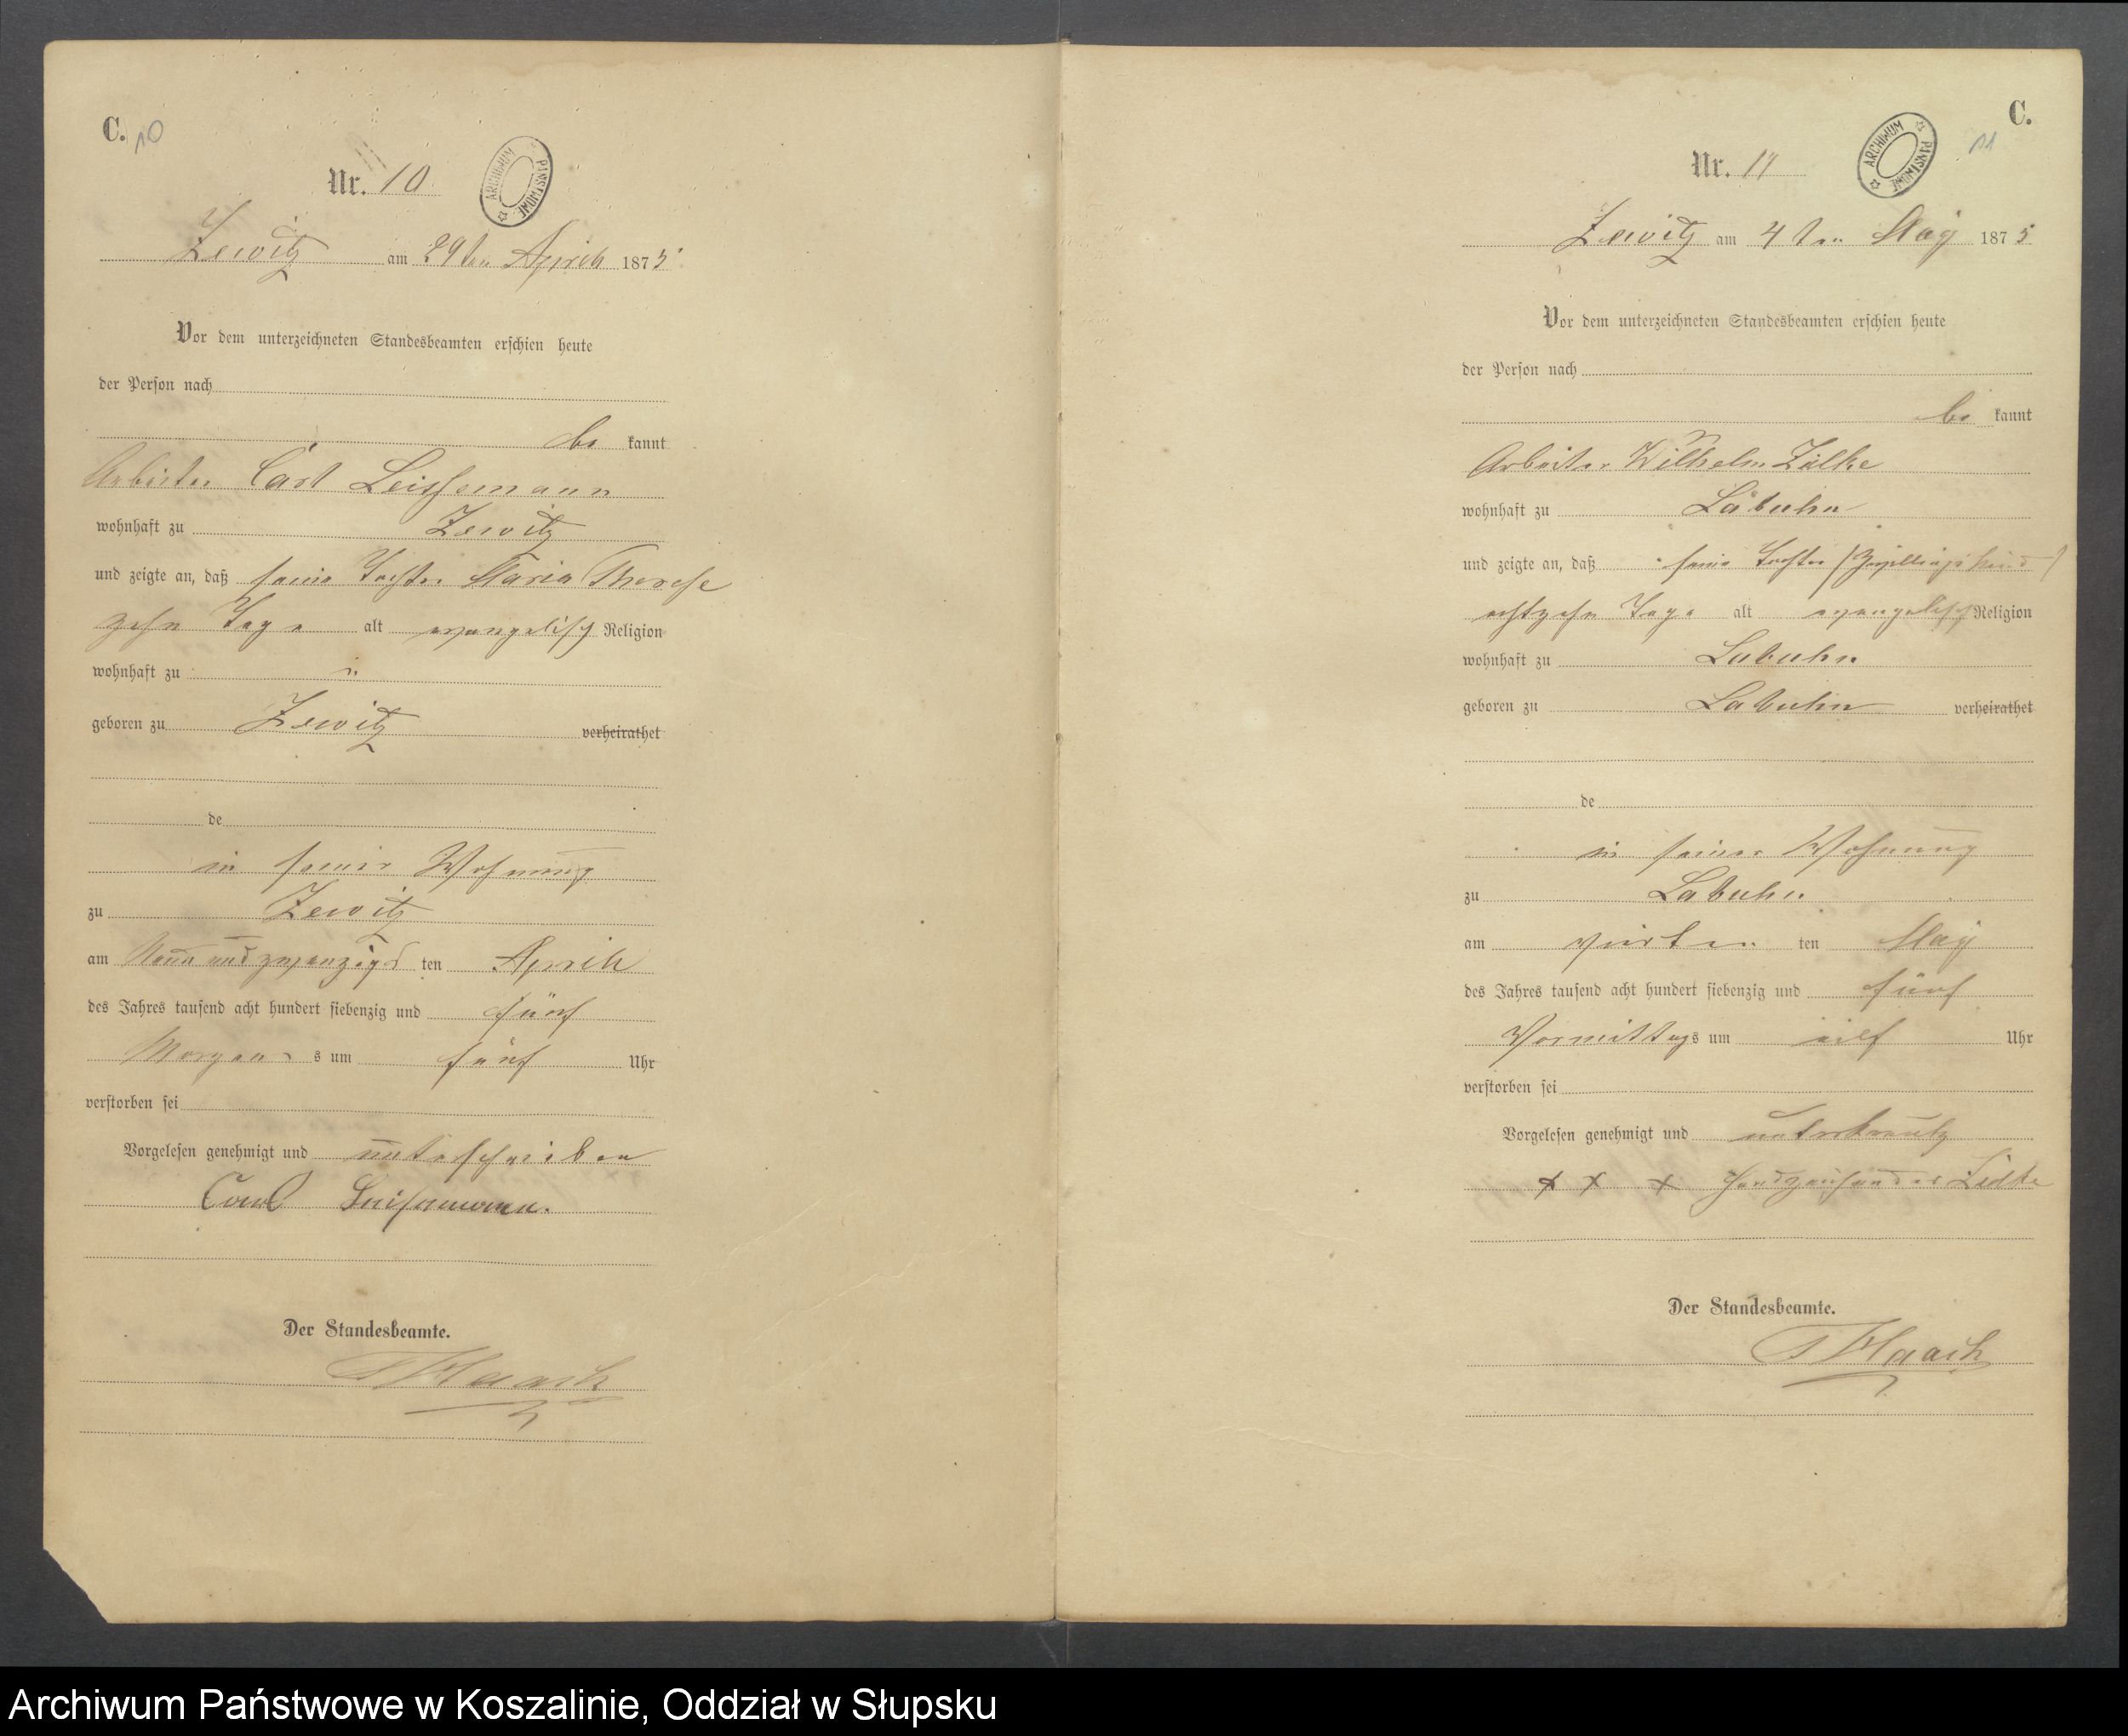 C. 10
ARCHIWUM PAŃSTWOWE
Nr. 10
Zewitz am 29ten April 1875
Vor dem unterzeichneten Standesbeamten erschien heute
der Person nach
be kannt
Arbeiter Carl Leissemann
wohnhaft zu Zewitz
und zeigte an, daß seine Tochter Maria Therese
zehn Tage alt evangelisch Religion
wohnhaft zu
geboren zu Zewitz verheirathet
de
in seiner Wohnung
zu Zewitz
am Neun und zwanzigs ten April
des Jahres tausend acht hundert siebenzig und fünf
Morgens um fünf Uhr
verstorben sei
Vorgelesen genehmigt und unterschrieben
Carl
Der Standesbeamte.
Haack
C.
11
ARCHIWUM PAŃSTWOWE
Nr. 11
Zewitz am 4ten May 1875
Vor dem unterzeichneten Standesbeamten erschien heute
der Person nach
be kannt
Arbeiter Wilhelm
wohnhaft zu Labuhn
und zeigte an, daß seine Tochter (Zwillingskind)
achtzehn Tage alt evangelisch Religion
wohnhaft zu Labuhn
geboren zu Labuhn verheirathet
de
in seiner Wohnung
zu Labuhn
am vierten ten May
des Jahres tausend acht hundert siebenzig und fünf
Vormittags um eilf Uhr
verstorben sei
Vorgelesen genehmigt und unterkreutz
x x x Handzeichen des
Der Standesbeamte.
Haack
Archiwum Państwowe w Koszalinie, Oddział w Słupsku